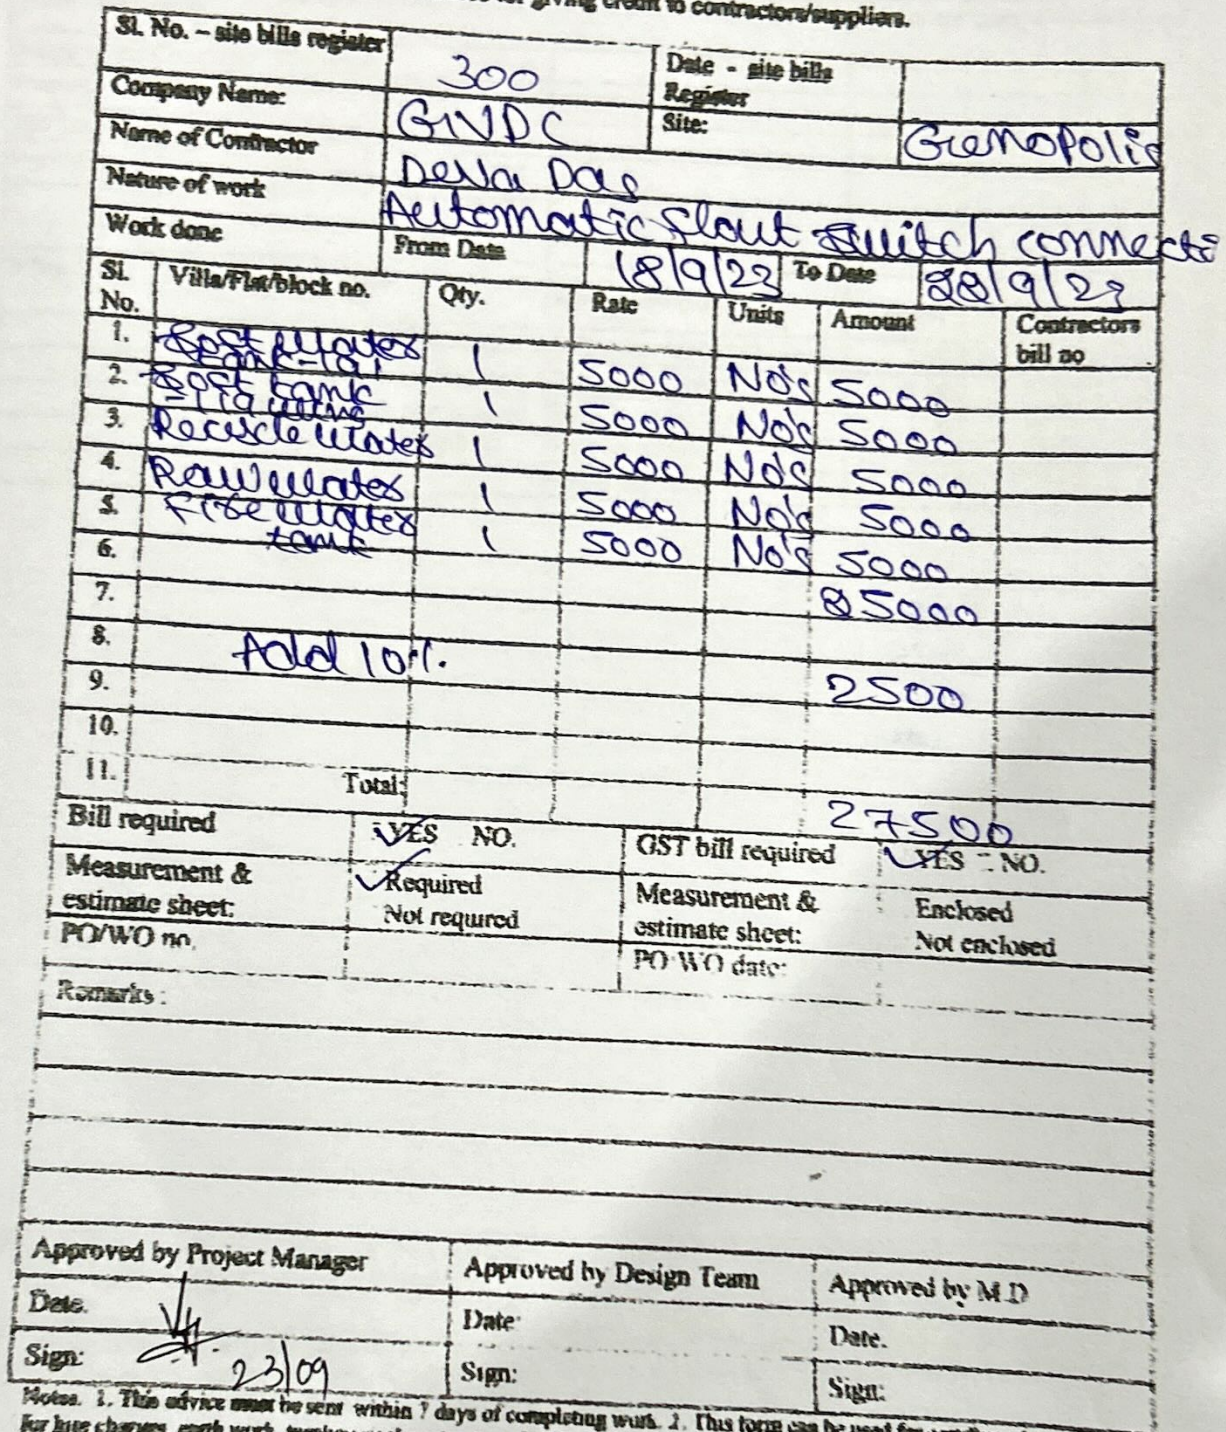 for giving credit to contractors/suppliers.
Sl. No. – site bills register 300 Date - site bills Register
Company Name: GNDC Site: Genopolis
Name of Contractor Deva Das
Nature of work Automatic flout switch connecti
Work done From Date 18/9/23 To Date 28/9/23
Sl. No. Villa/Flat/block no. Qty. Rate Units Amount Contractors bill no
1. Water 1 5000 No's 5000
2. tank 1 5000 No's 5000
3. Recycle Water 1 5000 No's 5000
4. Raw Water 1 5000 No's 5000
5. Fire Water tank 1 5000 No's 5000
6.
7. 25000
8. Add 10%
9. 2500
10.
11. Total: 27500
Bill required YES NO. GST bill required YES NO.
Measurement & estimate sheet: Required Not required Measurement & estimate sheet: Enclosed Not enclosed
PO/WO no. PO WO date:
Remarks :
Approved by Project Manager Approved by Design Team Approved by M.D
Date. Date: Date.
Sign: 23/09 Sign: Sign:
Notes. 1. This advice must be sent within 7 days of completing work. 2. This form can be used for
For hire charges, earth work,